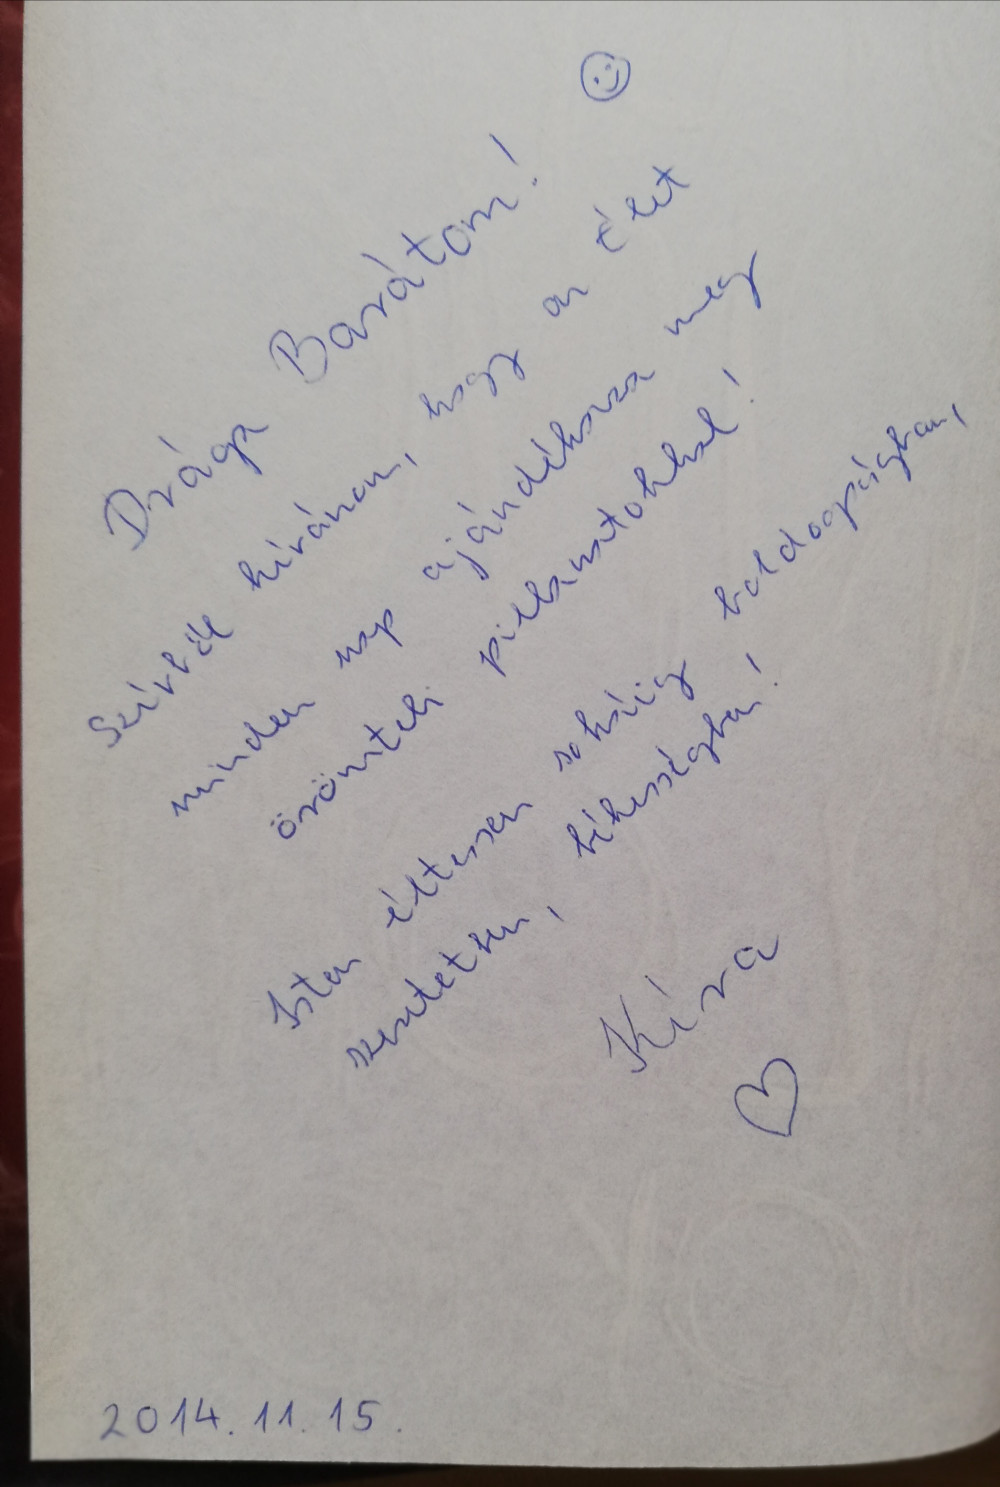 Drága Barátom!
Szívből kívánom, hogy az élet
minden nap ajándékozza meg
örömteli pillanatokkal!
Isten éltessen sokáig boldogságban,
szeretetben, békességben!
Kíra
2014.11.15.